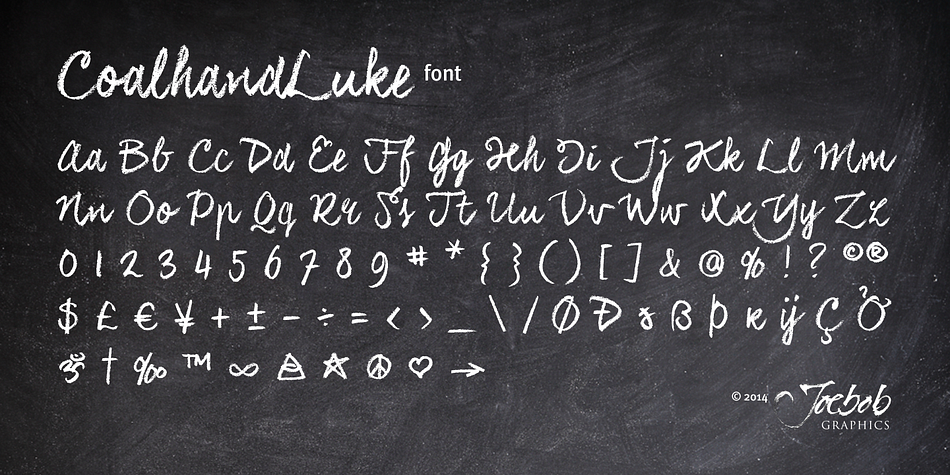 CoalhandLuke font
Aa Bb Cc Dd Ee Ff Gg Hh Ii Jj Kk Ll Mm
Nn Oo Pp Qq Rr Ss Tt Uu Vv Ww Xx Yy Zz
0 1 2 3 4 5 6 7 8 9 # * { } ( ) [ ] & @ % ! ? © ®
$ £ € ¥ + ± − ÷ = < > _ \ / Ø Ð ß þ ĸ ÿ Ç Ơ
ॐ † ‰ ™ ∞ ☮ ♡ →
© 2014 Joebob
GRAPHICS